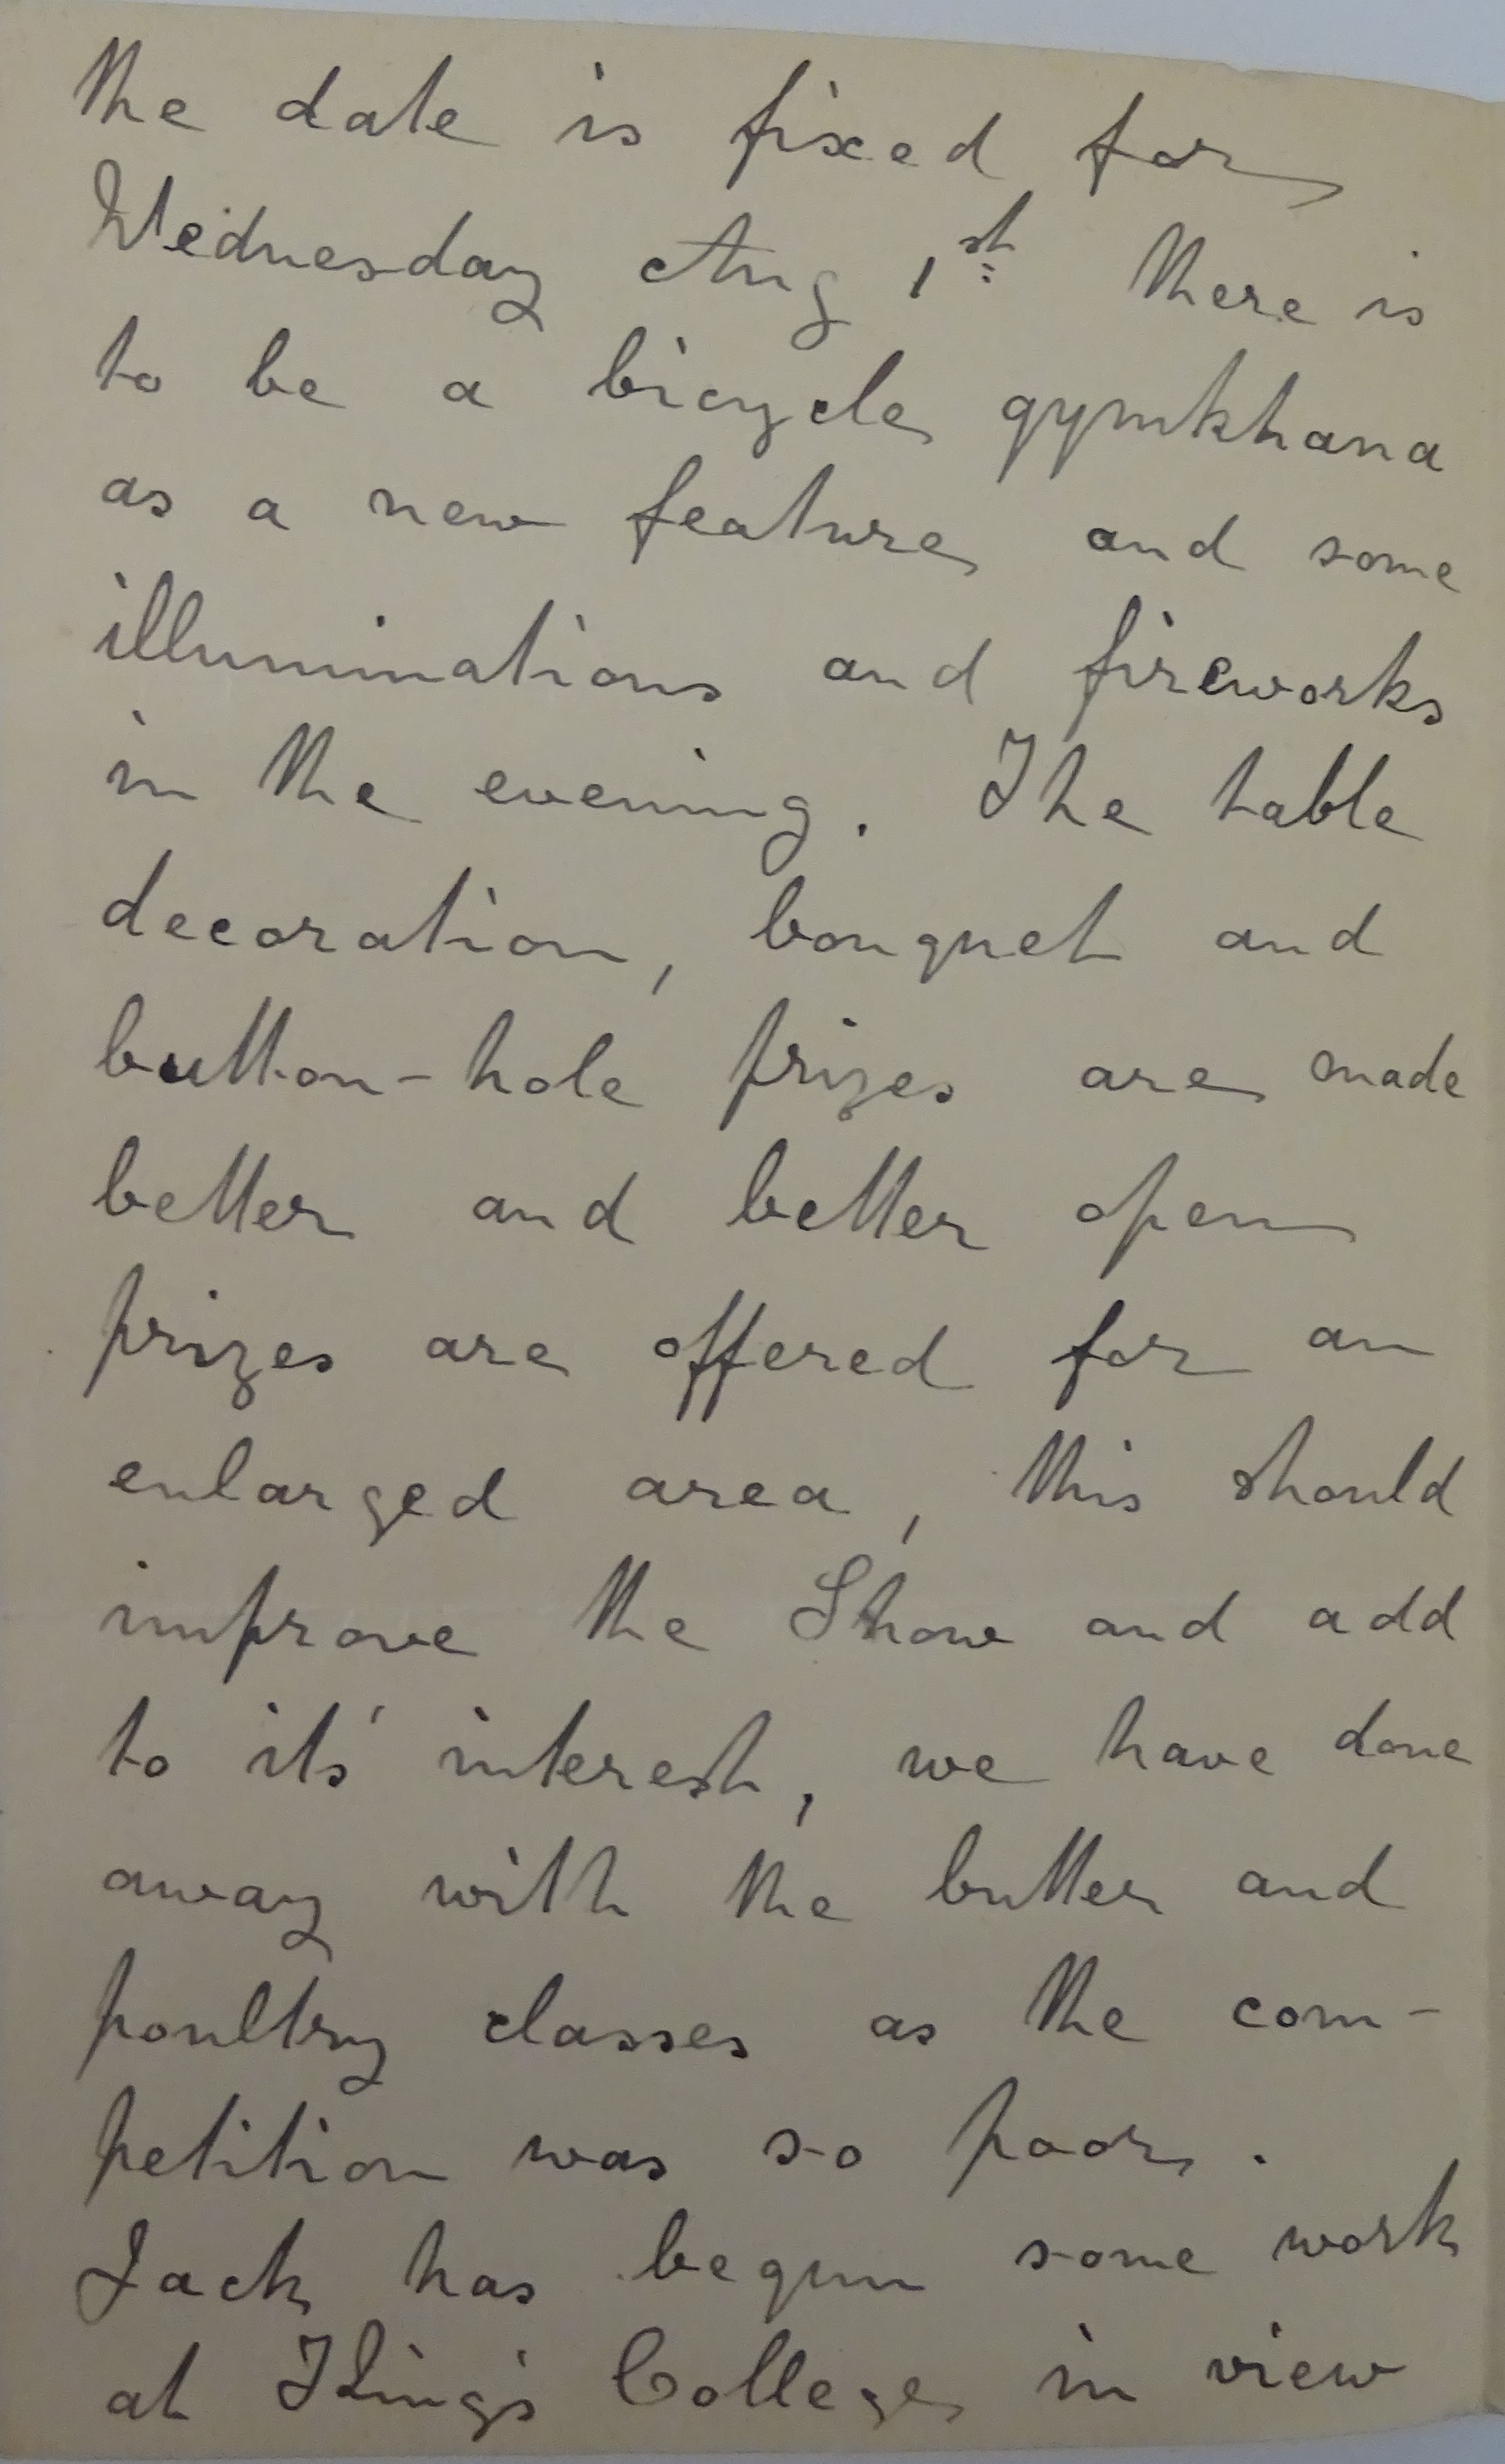 the date is fixed for
Wednesday Aug 1st there is
to be a bicycle gymkhana
as a new feature and some
illuminations and fireworks
in the evening. The table
decoration, bouquet and
button-hole prizes are made
better and better open
prizes are offered for an
enlarged area, this should
improve the Show and add
to its' interest, we have done
away with the butter and
poultry classes as the com-
petition was so poor.
Jack has begun some work
at King's College in view